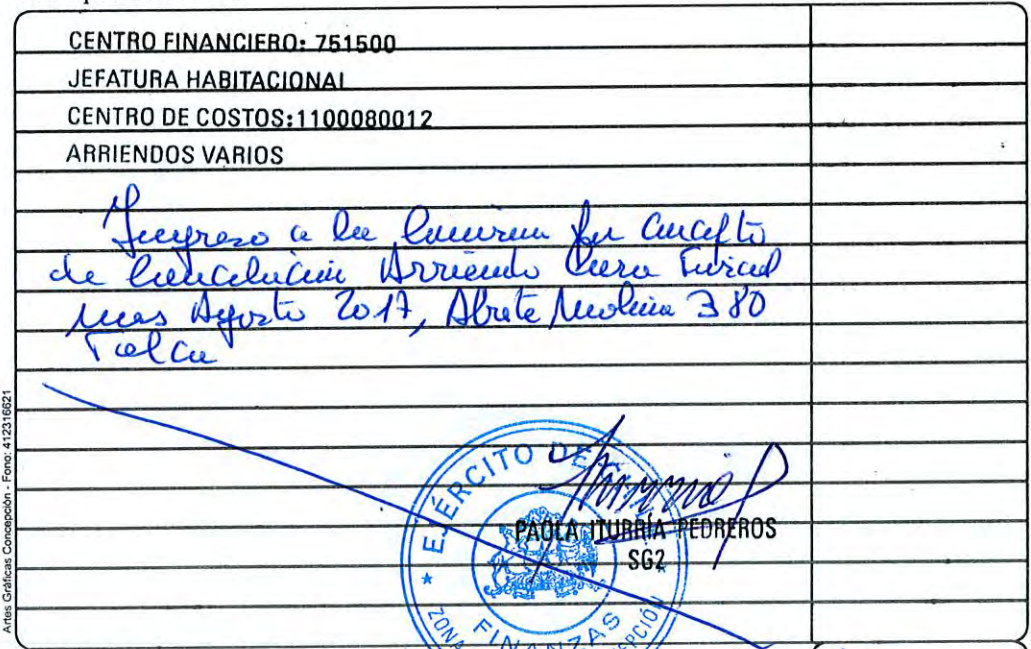 CENTRO FINANCIERO: 751500
JEFATURA HABITACIONAL
CENTRO DE COSTOS:1100080012
ARRIENDOS VARIOS
Ingreso a la por concepto
de Arriendo
mes Agosto 2017, Abate Molina 380
Talca
EJÉRCITO DE
PAOLA ITURRÍA PEDREROS
SG2
ZONA
FINANZAS
Artes Gráficas Concepción - Fono: 412316621